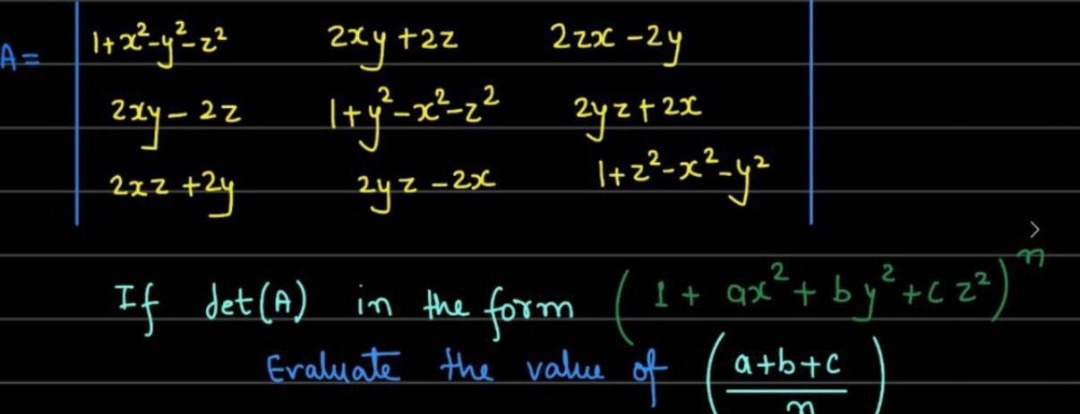 A = | 1+x²-y²-z² 2xy+2z 2zx-2y |
| 2xy-2z 1+y²-x²-z² 2yz+2x |
| 2xz+2y 2yz-2x 1+z²-x²-y² |
If det(A) in the form (1 + ax² + by² + cz²)ⁿ
Evaluate the value of (a+b+c / n)